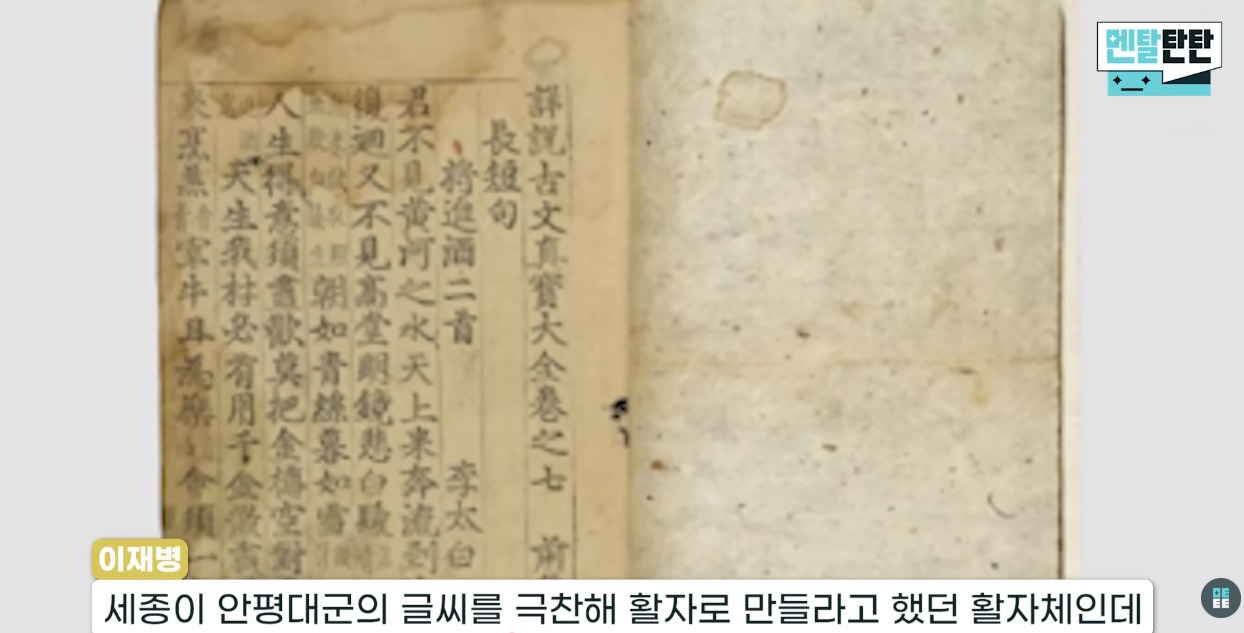 멘탈탄탄
詳說古文真寶大全卷之七 前
長短句
將進酒二首 李太白
君不見黄河之水天上来奔流到
迴又不見高堂明鏡悲白髮
朝如青絲暮如雪
人生得意須盡歡莫把金樽空對
天生我材必有用千金散
烹羔宰牛且為樂 會須一
이재병
세종이 안평대군의 글씨를 극찬해 활자로 만들라고 했던 활자체인데